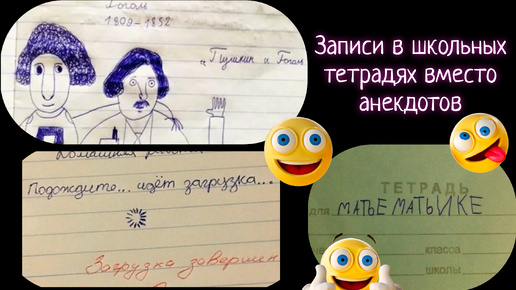 Гоголь
1809-1852
"Пушкин и Гоголь
Записи в школьных
тетрадях вместо
анекдотов
Домашняя
Подождите... идёт загрузка...
Загрузка завершен
ТЕТРАДЬ
для МАТЬЕМАТЬИКЕ
класса
школы